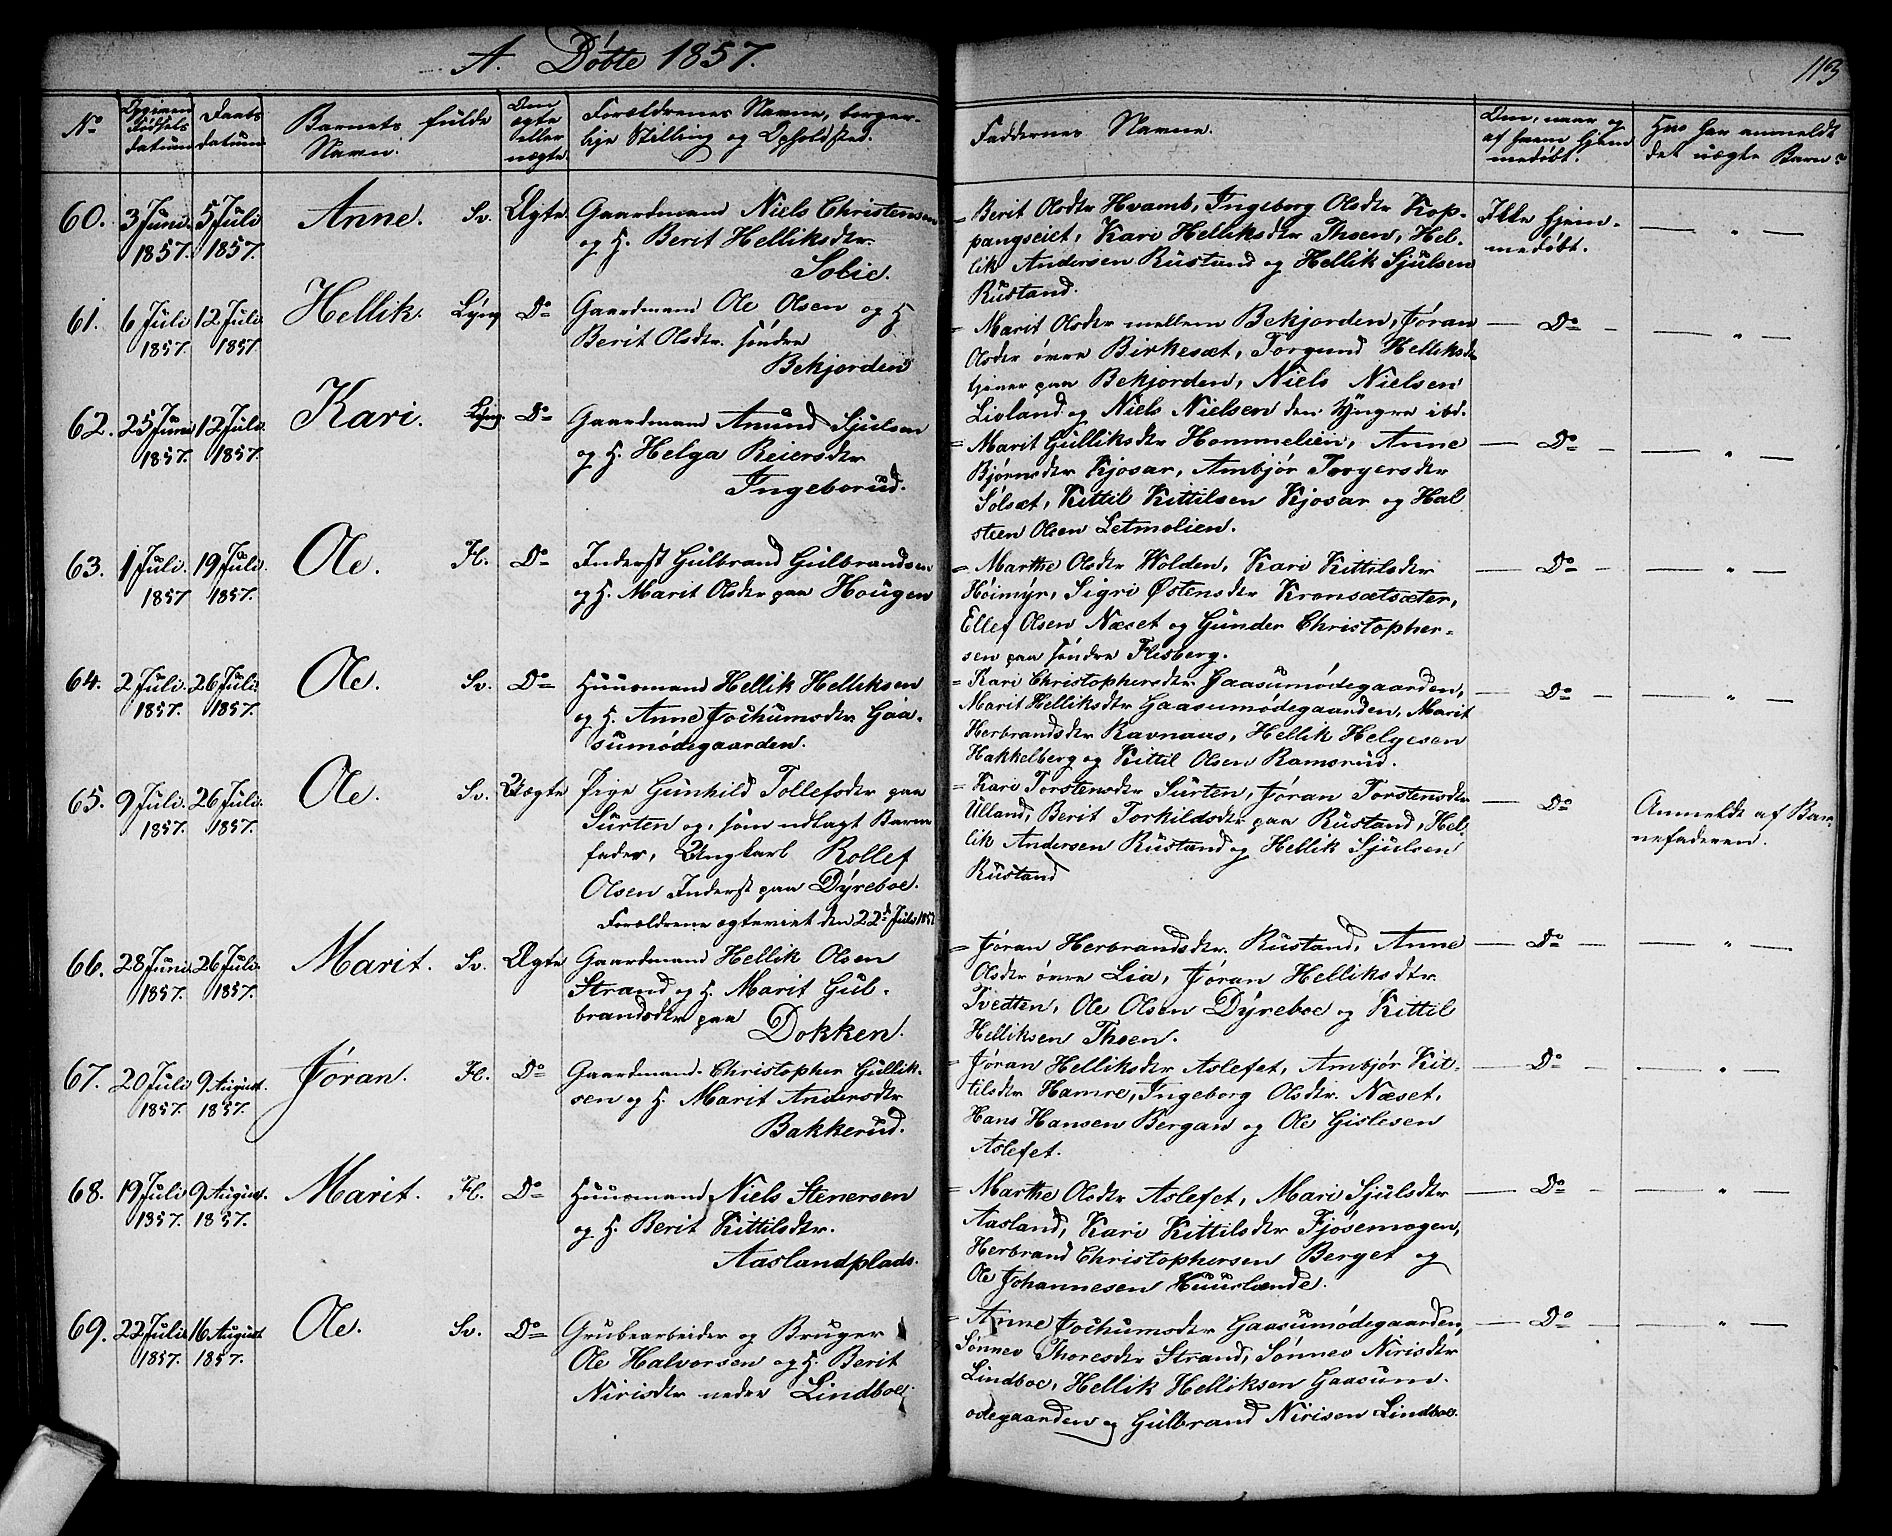 A. Døbte 1857.
113
No
Opgiven Fødsels datum
Daabs datum
Barnets fulde Navn.
Om ægte eller uægte
Forældrenes Navne, borgerlige Stilling og Opholdsted.
Faddernes Navne.
Om, naar og af hvem hjemmedøbt.
Hvo har anmeldt det uægte Barn?
60. 3 Juni 1857. 5 Juli 1857. Anne. Sv. Ægte.
Gaardmand Niels Christensen
og H. Berit Helliksdtr.
= Berit Olsdtr Hvamb, Ingeborg Olsdtr Kop-
pangseiet, Kari Helliksdtr Thoen, Hel-
lik Andersen Rustand og Hellik Sjulsen
Rustand.
Ikke hjem-
medøbt.
— " —
61. 6 Juli 1857. 12 Juli 1857. Hellik. Lyng Do
Gaardmand Ole Olsen og H
Berit Olsdtr. søndre
Bekjorden
= Marit Olsdtr mellem Bekjorden, Jøran
Olsdtr øvre Birkesæt, Torgund Helliksdtr
tjener paa Bekjorden, Niels Nielsen
Livland og Niels Nielsen den Yngre ibd.
— Do —
— " —
62. 25 Juni 1857. 12 Juli 1857. Kari. Lyng. Do
Gaardmand Amund Sjulsen
og H. Helga Reiersdtr
Ingeborud.
= Marit Gulliksdtr Hommelien, Anne
Bjørnsdtr Kjosar, Ambjør Torgersdtr
Sølsæt, Kittil Kittilsen Kjosar og Hal
steen Olsen Letmolien.
— Do —
— " —
63. 1 Juli 1857 19 Juli 1857. Ole. Fl. Do
Inderst Gulbrand Gulbrandsen
og H. Marit Olsdtr paa Hougen
= Marthe Olsdtr Wolden, Kari Kittilsdtr
Høimyr, Sigri Østensdtr Kronsætsæter,
Ellef Olsen Næset og Gunder Christopher-
sen paa søndre Flesberg.
— Do —
— " —
64. 2 Juli 1857. 26 Juli 1857. Ole. Sv. Do
Huusmand Hellik Helliksen
og H. Anne Jochumsdtr Gaa-
sumødegaarden.
= Kari Christophersdtr Gaasumødegaarden,
Marit Helliksdtr Gaasumødegaarden, Marit
Herbrandsdtr Ravnaas, Hellik Helgesen
Hakkelberg og Kittil Olsen Ramsrud.
— Do —
— " —
65. 9 Juli 1857. 26 Juli 1857. Ole. Sv. Uægte
Pige Gunhild Tollefsdtr paa
Surten og, som udlagt Barne
fader, Ungkarl Rollef
Olsen Inderst paa Dyreboe.
Forældrene ægteviet den 22d Juli 1857
= Kari Torstensdtr Surten, Jøran Torstensdtr
Ulland, Berit Torkildsdtr paa Rustand, Hel-
lik Andersen Rustand og Hellik Sjulsen
Rustand
— Do
Anmeldt af Bar-
nefaderen.
66. 28 Juni 1857. 26 Juli 1857. Marit. Sv. Ægte
Gaardmand Hellik Olsen
Strand og H. Marit Gul-
brandsdtr paa Dokken.
= Jøran Herbrandsdtr. Rustand, Anne
Olsdtr øvre Lia, Jøran Helliksdtr.
Tvedten, Ole Olsen Dyreboe og Kittil
Helliksen Thoen.
— Do —
— " —
67. 20 Juli 1857. 9 August 1857. Jøran. Fl. Do
Gaardmand Christopher Gullik-
sen og H. Marit Andersdtr
Bakkerud.
= Jøran Helliksdtr Aslefet, Ambjør Kit-
tilsdtr Hamre, Ingeborg Olsdtr. Næset,
Hans Hansen Bergan og Ole Gislesen
Aslefet.
— Do —
— " —
68. 19 Juli 1857. 9 August. 1857. Marit. Fl. Do
Huusmand Niels Stenersen
og H. Berit Kittilsdtr.
Aaslandplads.
= Marthe Olsdtr Aslefet, Mari Sjulsdtr
Aasland, Kari Kittilsdtr Fjosemogen,
Herbrand Christophersen Berget og
Ole Johannesen Huuslænde.
— Do —
— " —
69. 22 Juli 1857. 16 August 1857. Ole. Sv. Do
Grubearbeider og Bruger
Ole Halvorsen og H. Berit
Nirisdtr nedre Lindboe.
= Anne Jochumsdtr Gaasumødegaarden,
Sønnev Thoresdtr Strand, Sønnev Nirisdtr
Lindboe, Hellik Helliksen Gaasum-
ødegaarden og Gulbrand Nirisen Lindboe.
— Do —
— " —